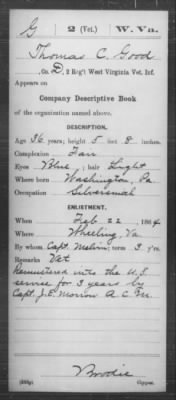 G 2 (Vet.) W. Va.
Thomas C. Good
, Co. D, 2 Reg't West Virginia Vet. Inf.
Appears on
Company Descriptive Book
of the organization named above.
DESCRIPTION.
Age 36 years; height 5 feet 8 inches.
Complexion Fair
Eyes Blue; hair Light
Where born Washington, Pa
Occupation Silversmith
ENLISTMENT.
When Feb 22, 1864
Where Wheeling, Va
By whom Capt. Melvin; term 3 y'rs.
Remarks Vet
Remustered into the U.S.
service for 3 years by
Capt. J.E. Morrow A.C.M.
Brodie
Copyist.